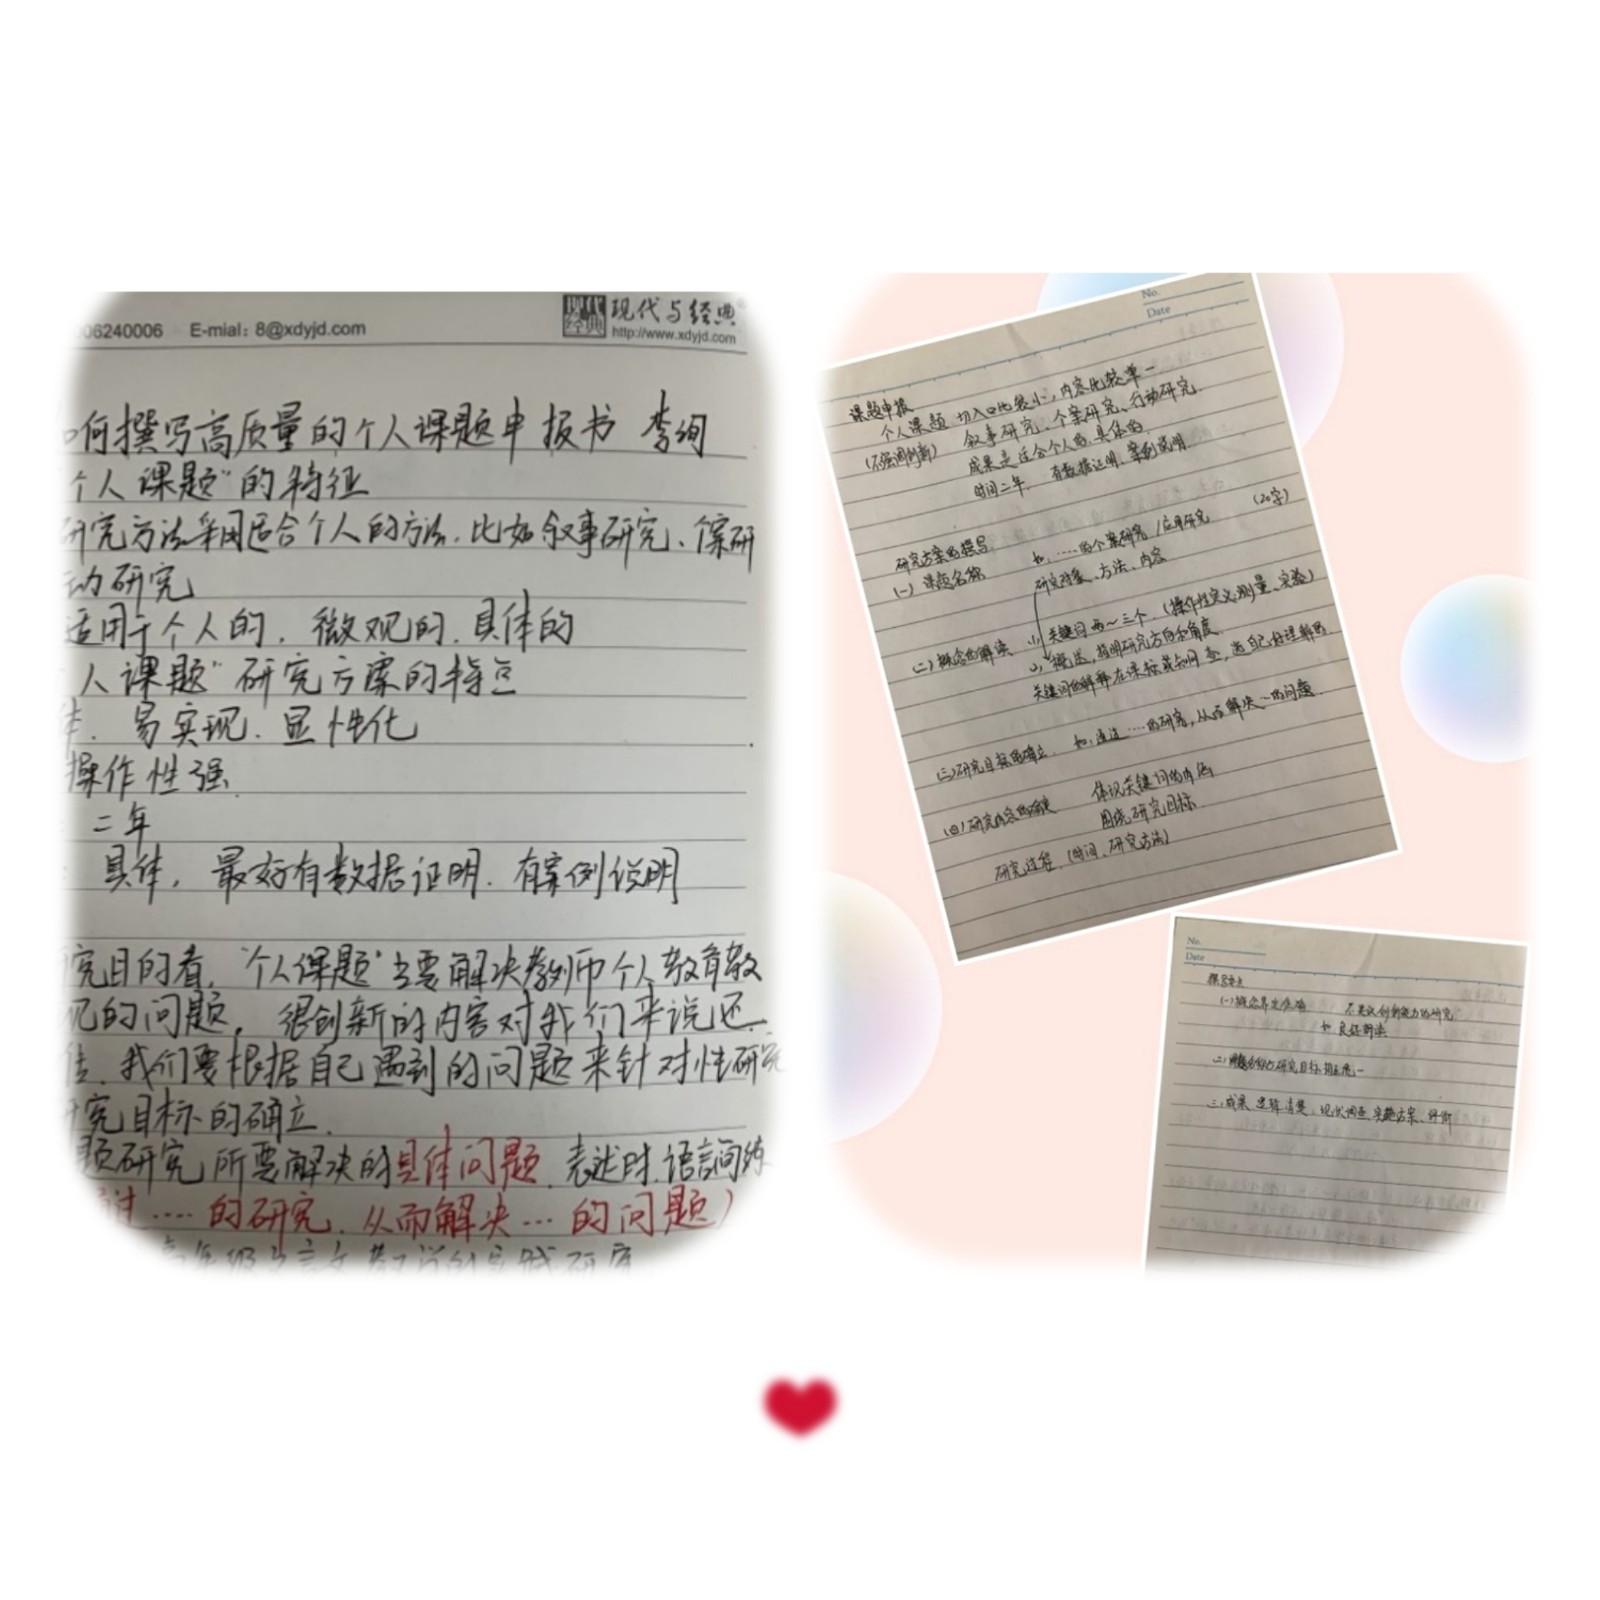 006240006 E-mial: 8@xdyjd.com
现代经典 现代与经典
http://www.xdyjd.com
何撰写高质量的个人课题申报书 李绚
个人课题"的特征
研究方法采用适合个人的方法.比如叙事研究、个案研
动研究
适用于个人的.微观的.具体的
人课题"研究方案的特点
易实现.显性化
操作性强.
二年
具体,最好有数据证明.有案例说明
究目的看,"个人课题"主要解决教师个人教育教
现的问题,很创新的内容对我们来说还
我们要根据自己遇到的问题来针对性研究
研究目标的确立.
题研究所要解决的具体问题.表述时.语言简练
过....的研究.从而解决...的问题)
高年级文言文教学的实践研究
No.
Date
课题申报
个人课题 切入口比较小,内容比较单一
(不强调创新) 叙事研究、个案研究、行动研究.
成果是适合个人的.具体的.
时间二年. 有数据证明、案例说明
研究方案的撰写 (20字)
(一)课题名称 如.....的个案研究/应用研究
研究对象、方法、内容
(二)概念的解读 1,关键词两~三个.(操作性定义:测量、实验)
2,概述,指明研究方向和角度.
关键词的解释在课标或知网查,选自己好理解的.
(三)研究目标的确立. 如:通过....的研究,从而解决...的问题.
(四)研究内容的确定 体现关键词的内涵
围绕研究目标.
研究过程.(时间、研究方法)
No.
Date
撰写要点
(一)概念界定准确 不建议创新能力的研究
如 良好阅读
(二) 研究目标相统一
三,成果 逻辑清楚.现状调查.实施方案、评价